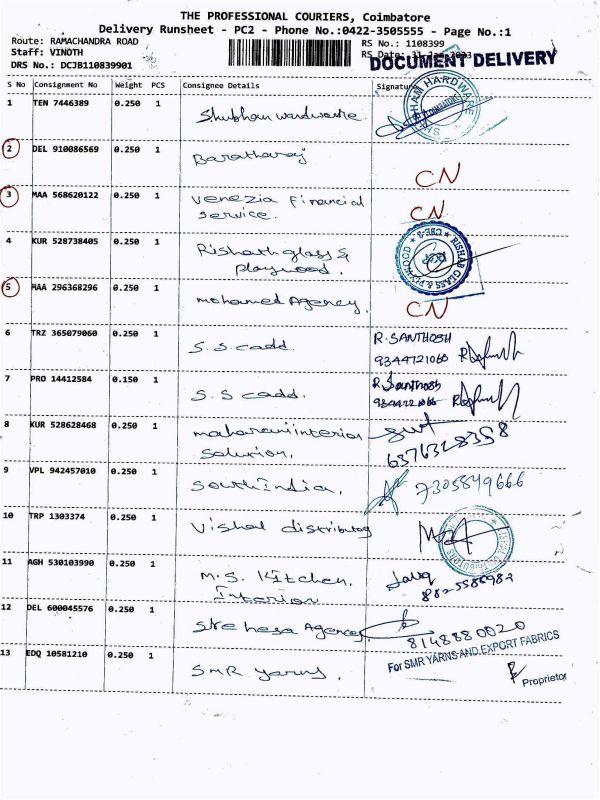 THE PROFESSIONAL COURIERS, Coimbatore
Delivery Runsheet - PC2 - Phone No.:0422-3505555 - Page No.:1
Route: RAMACHANDRA ROAD
Staff: VINOTH
DRS No.: DCJB110839901
RS No.: 1108399
RS Date: 31 Jan 2023
DOCUMENT DELIVERY
S No Consignment No Weight PCS Consignee Details Signature
1 TEN 7446389 0.250 1 Shubham wardware
SHUBHAM HARDWARE
2 DEL 910086569 0.250 1 Baratharaj CN
3 MAA 568620122 0.250 1 Venezia Financial CN
Service.
4 KUR 528738405 0.250 1 Rishath glass &
playwood.
RISHAB GLASS & PLYWOOD
5 MAA 296368296 0.250 1 mohamed Agency. CN
6 TRZ 365079060 0.250 1 S.S cadd. R.SANTHOSH
9344721060
7 PRO 14412584 0.150 1 S.S cadd. R.Santhosh
9344721066
8 KUR 528628468 0.250 1 maharani interior
Solution. 6376328358
9 VPL 942457010 0.250 1 South India. 7305849666
10 TRP 1303374 0.250 1 Vishal distributog
11 AGH 530103990 0.250 1 M.S. Kitchen.
Interior 8825586982
12 DEL 600045576 0.250 1 Agency
8148880020
13 EDQ 10581210 0.250 1 SMR yarns.
For SMR YARNS AND EXPORT FABRICS
Proprietor